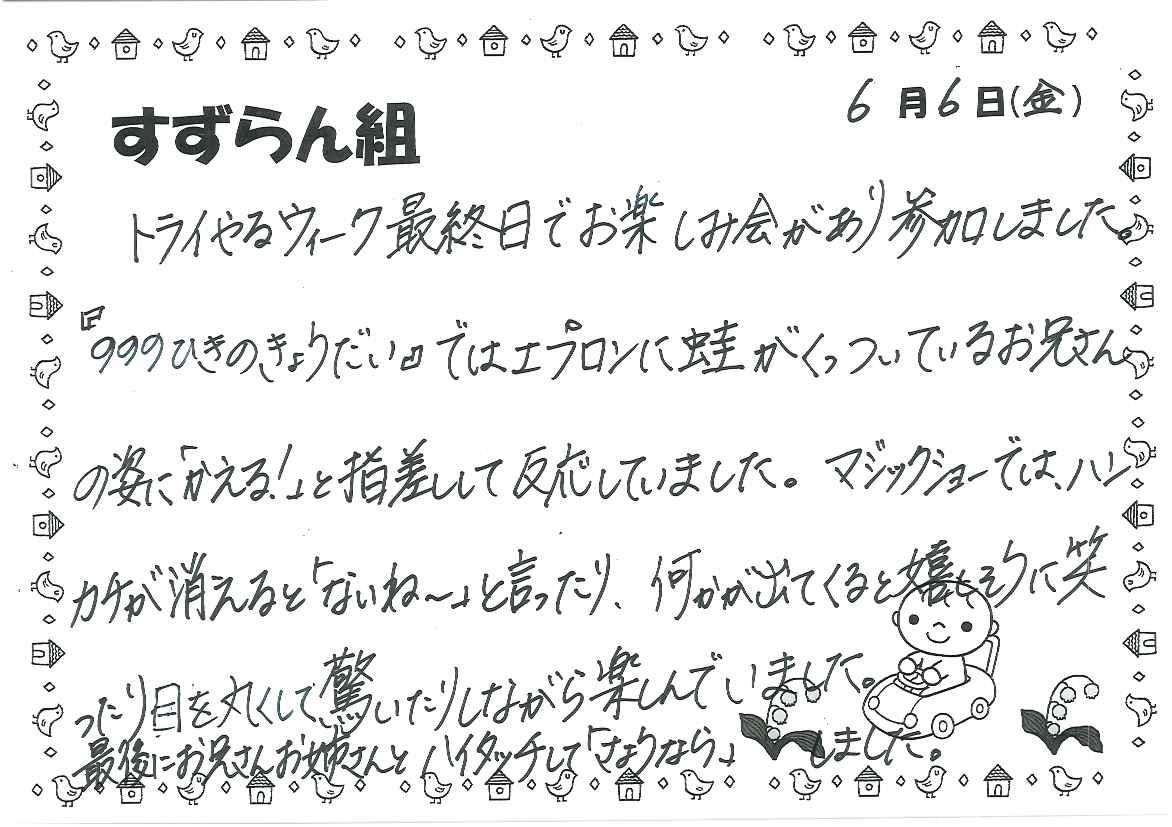 6月6日(金)
すずらん組
トライやるウィーク最終日でお楽しみ会があり参加しました。
『999ひきのきょうだい』ではエプロンに蛙がくっついているお兄さん
の姿に「かえる!」と指差しして反応していました。マジックショーでは、ハン
カチが消えると「ないね〜」と言ったり、何かが出てくると嬉しそうに笑
ったり目を丸くして驚いたりしながら楽しんでいました。
最後にお兄さんお姉さんとハイタッチして「さようなら」しました。